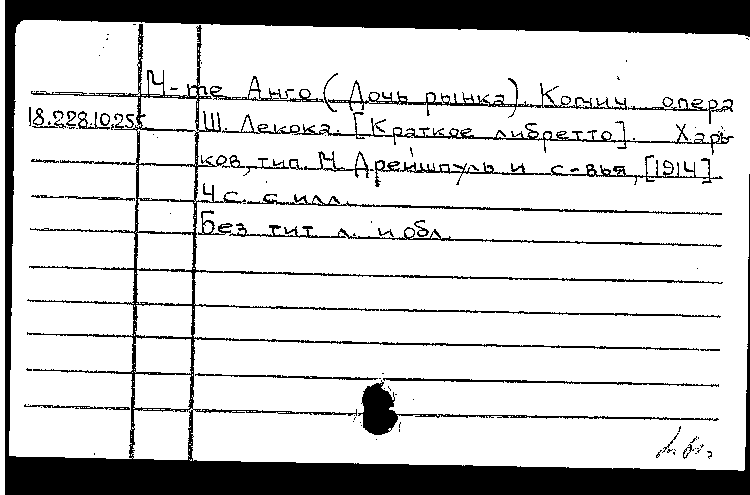 М-me Анго (Дочь рынка). Комич. опера
18.228.10.255 Ш. Лекока. [Краткое либретто]. Харь
ков, тип. М. Дрейшпуль и с-вья, [1914].
4 с. с илл.
Без тит л. и обл.